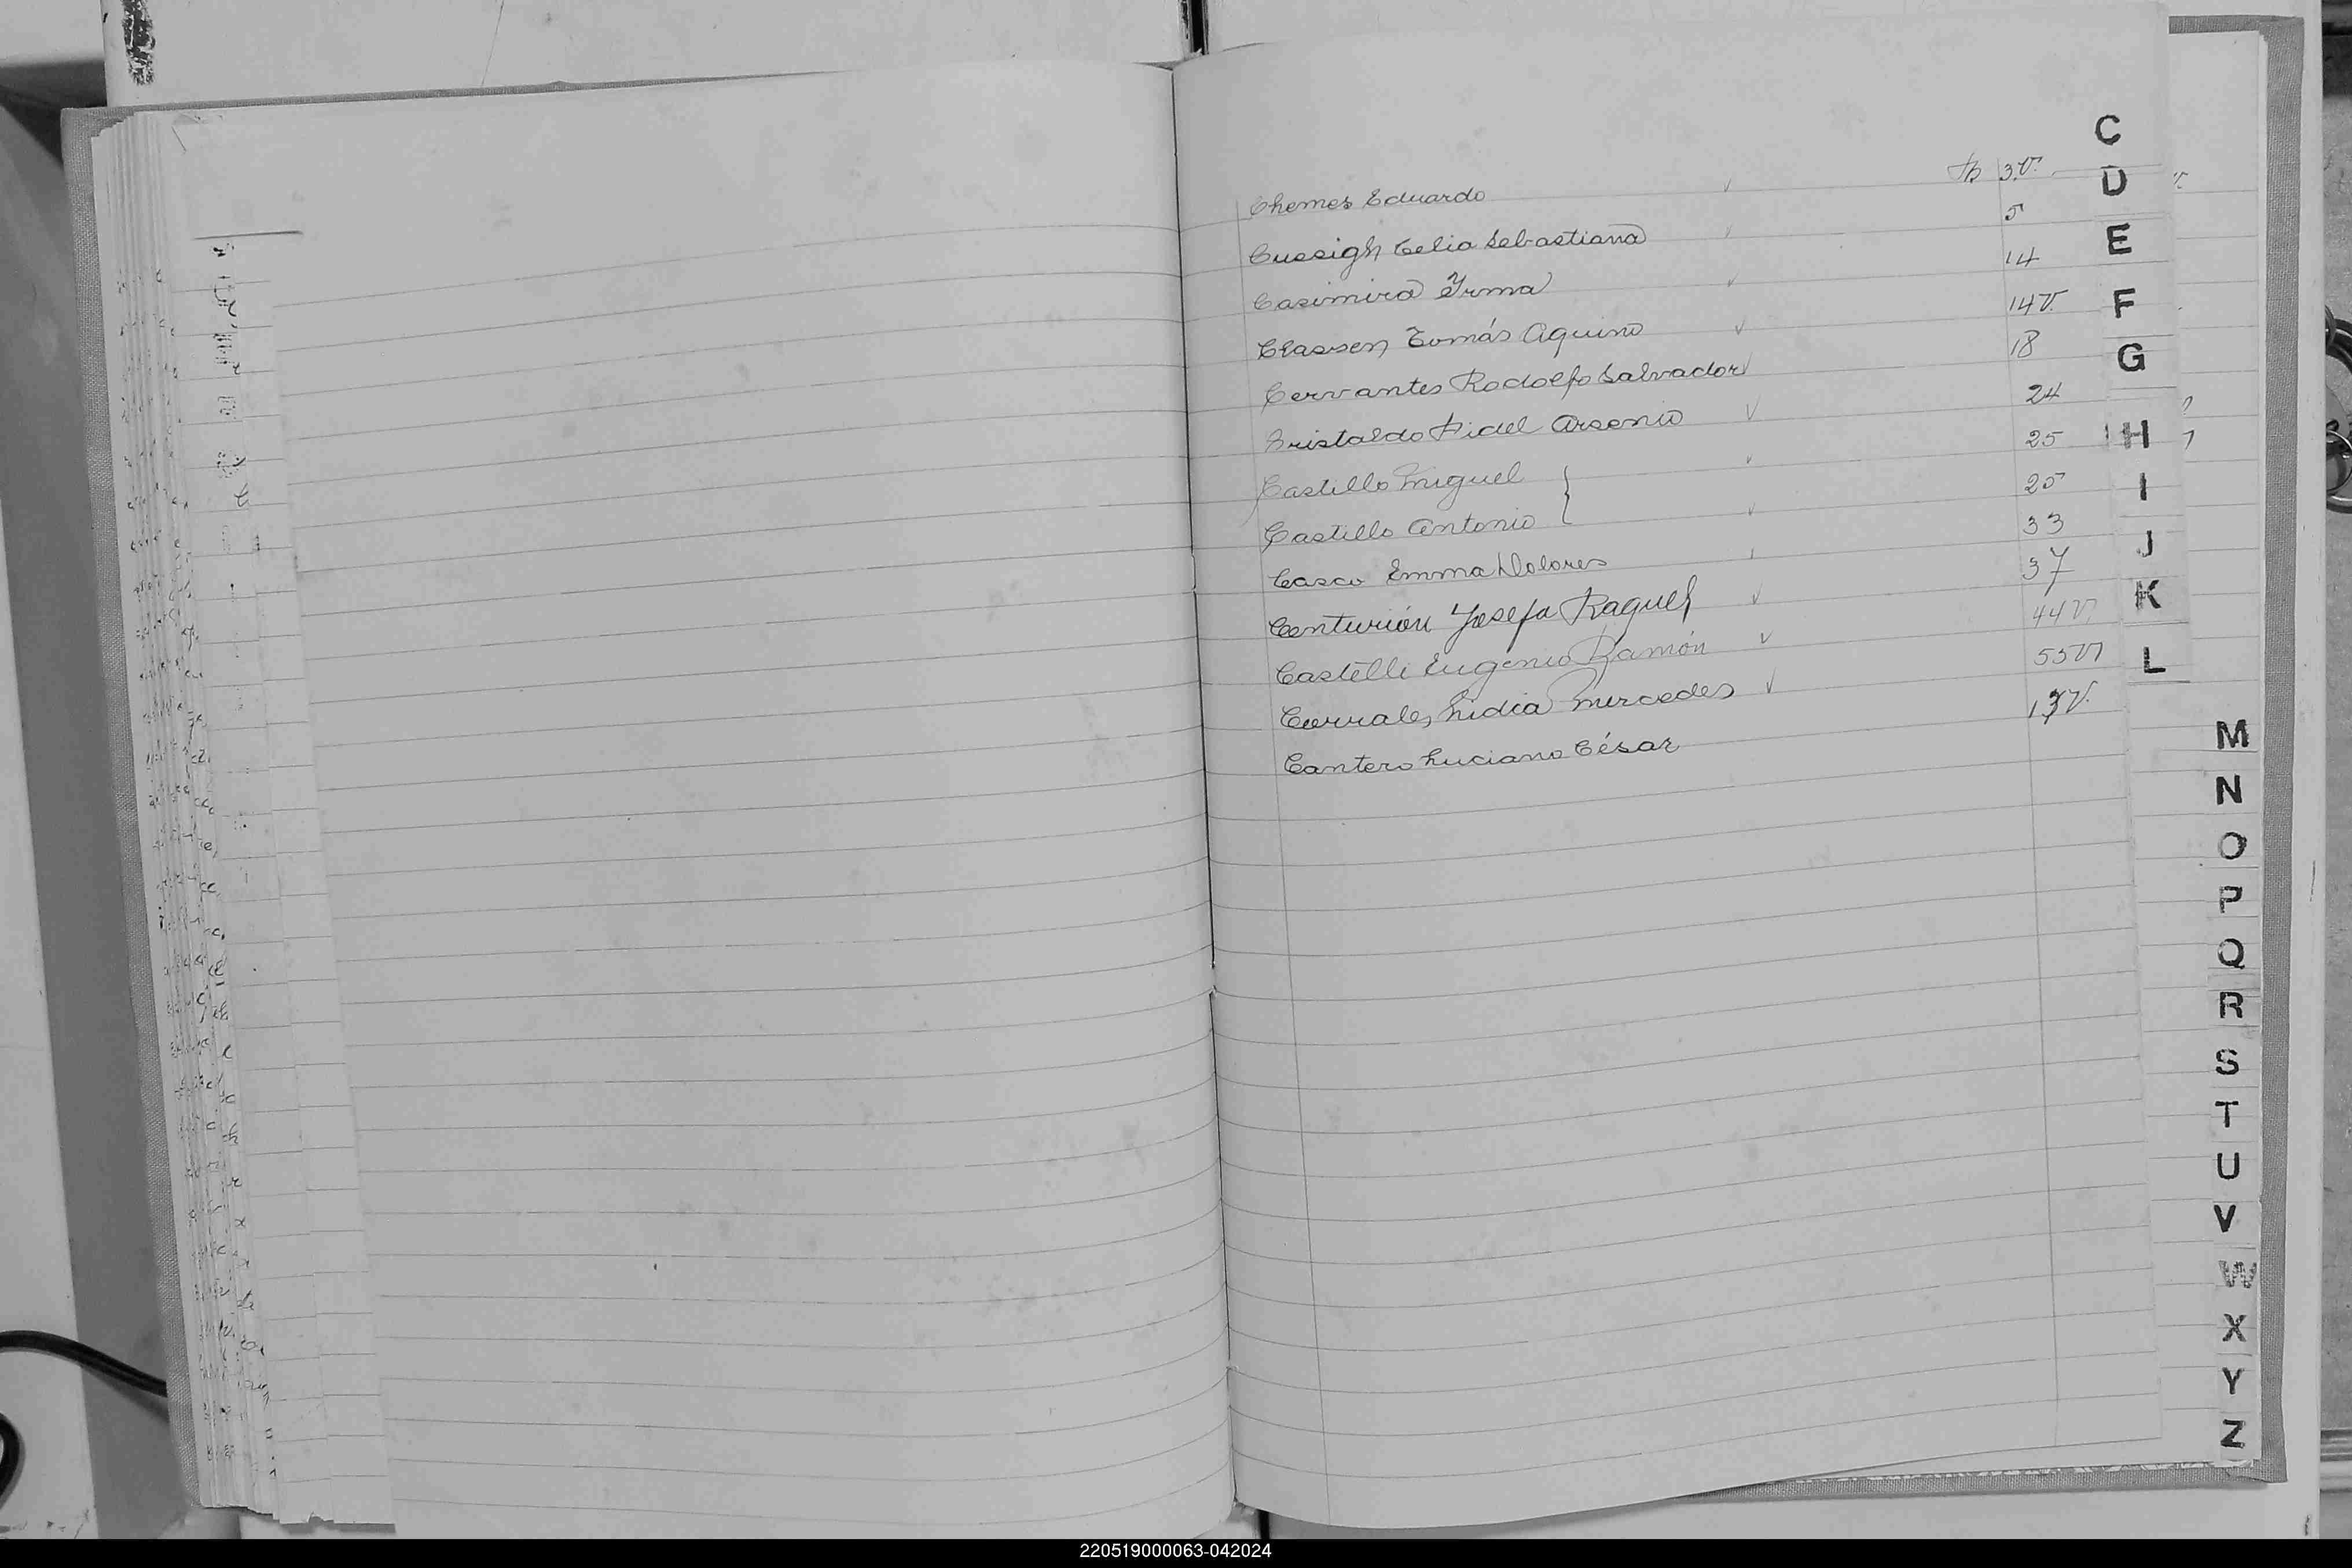 C
Chemes Eduardo fs 3v.
Cuesigh Celia Sebastiana 5
Casimira Yrma 14
Classen Tomás Aquino 14v.
Cervantes Rodolfo Salvador 18
Cristaldo Fidel Arsenio 24
Castillo Miguel 25
Castillo Antonio 25
Casco Emma Dolores 33
Centurión Josefa Raquel 37
Castelli Eugenio Ramón 44v.
Corrales Lidia Mercedes 55v
Cantero Luciano César 13v.
D
E
F
G
H
I
J
K
L
M
N
O
P
Q
R
S
T
U
V
W
X
Y
Z
220519000063-042024